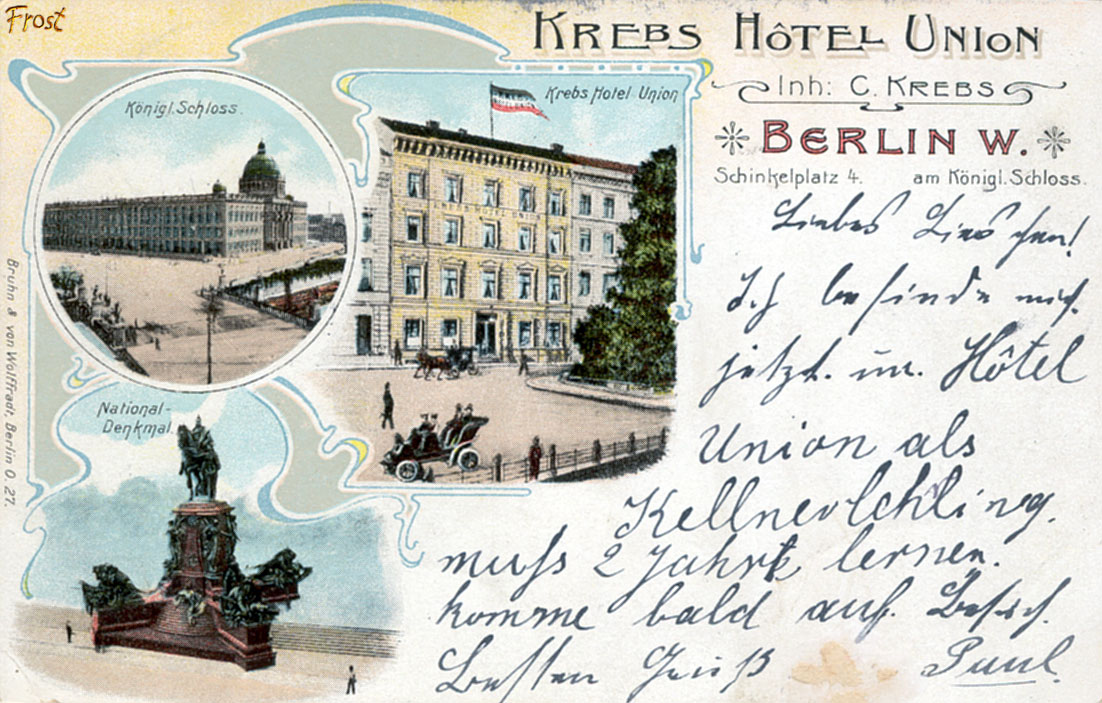 Frost
KREBS HÔTEL UNION
Inh: C. KREBS
BERLIN W.
Schinkelplatz 4. am Königl. Schloss.
Königl. Schloss
Krebs Hotel Union
National-
Denkmal.
Bruhn & von Wolffradt, Berlin O. 27.
Liebes Lieschen!
Ich befinde mich
jetzt. im. Hôtel
Union als
Kellnerlehling.
muss 2 Jahre lernen.
komme bald auf. Besuch.
Besten Gruß Paul